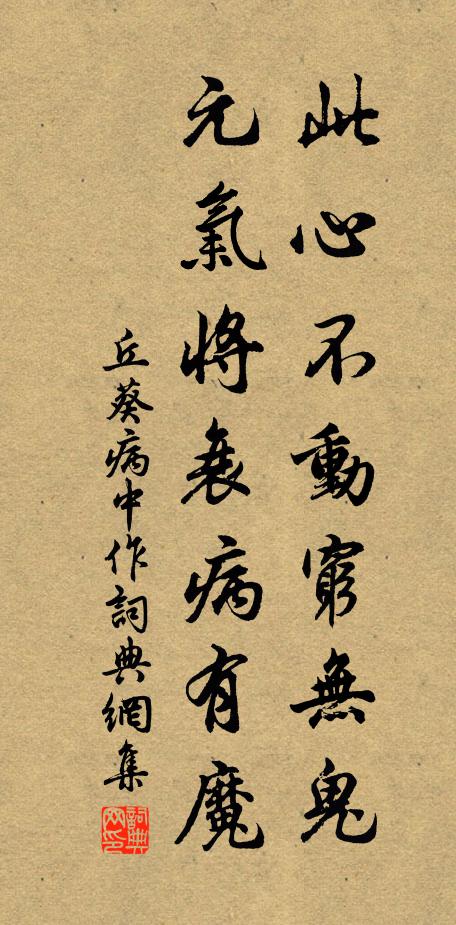 此心不動窮無鬼
元氣將衰病有魔
丘葵病中作詞典網集
詞典網印